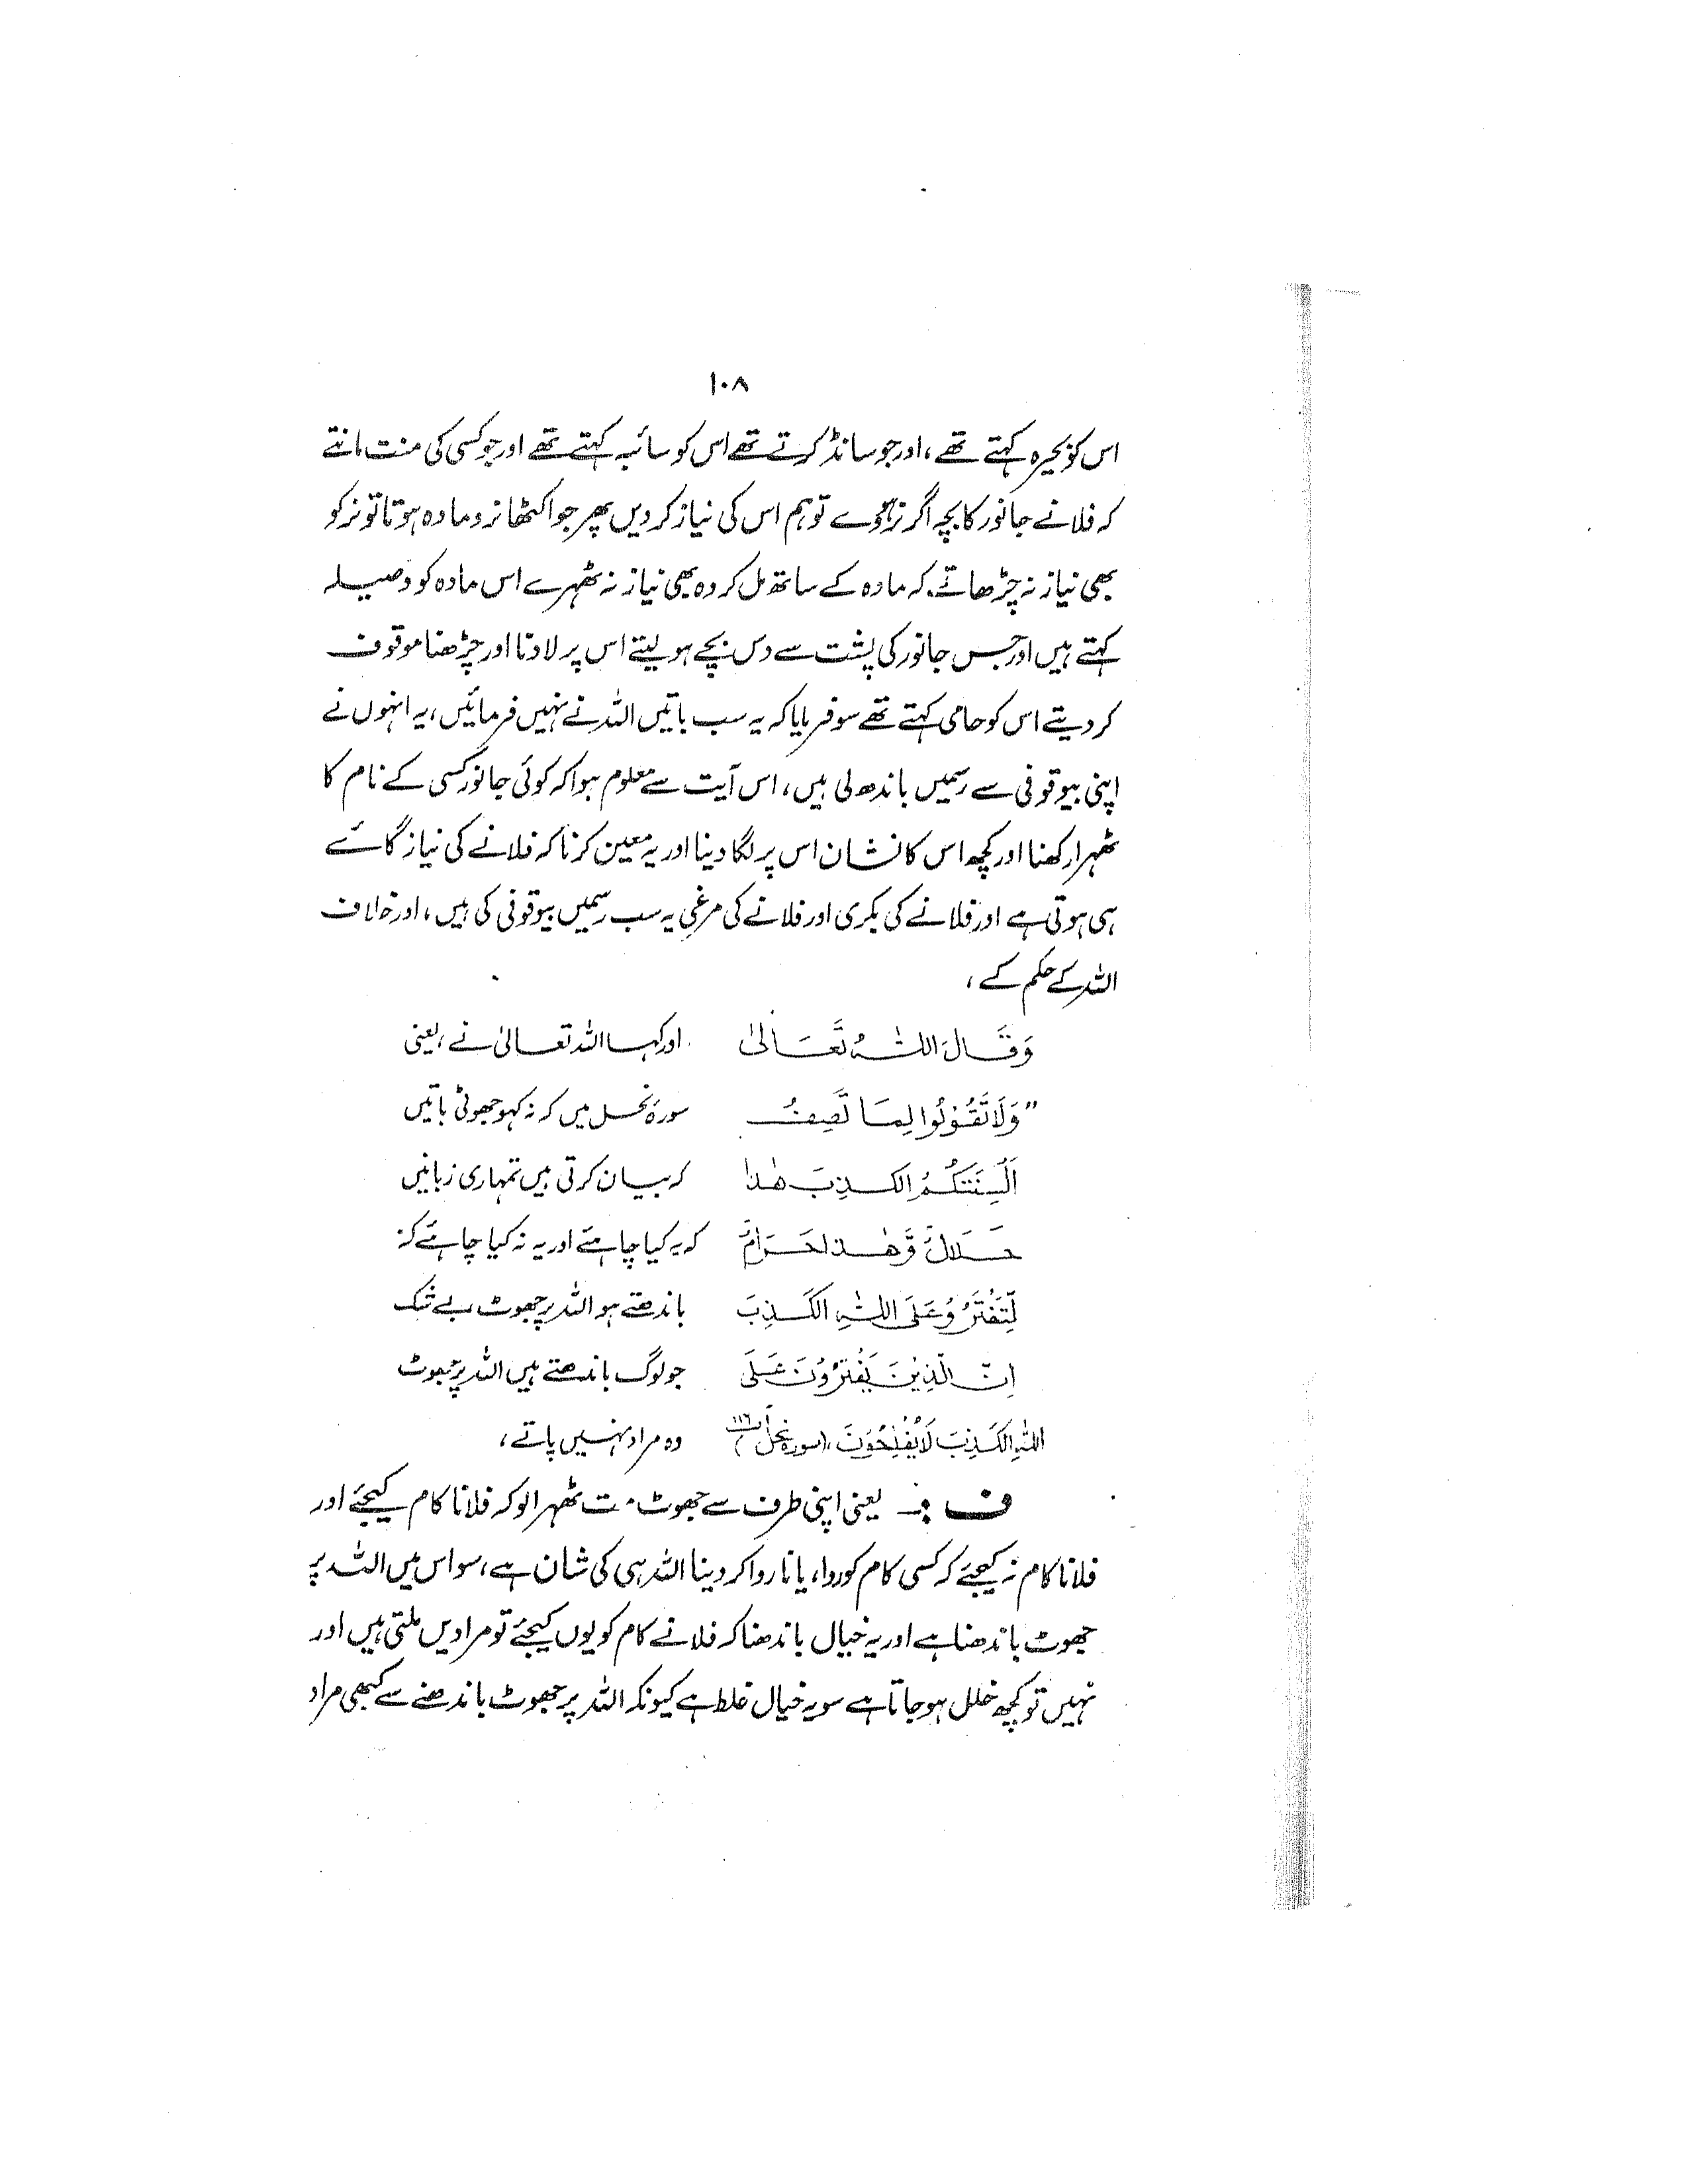 ۱۰۸
اس کو بحیرہ کہتے تھے، اور جو سانڈ کرتے تھے اس کو سائبہ کہتے تھے اور جو کسی کی منت مانتے
کہ فلانے جانور کا بچہ اگر نر ہووے تو ہم اس کی نیاز کر دیں پھر جو اکٹھا نر و مادہ ہوتا تو نر کو
بھی نیاز نہ چڑھاتے کہ مادہ کے ساتھ مل کر وہ بھی نیاز نہ ٹھہرے اس مادہ کو وصیلہ
کہتے ہیں اور جس جانور کی پشت سے دس بچے ہو لیتے اس پر لادنا اور چڑھنا موقوف
کر دیتے اس کو حامی کہتے تھے سو فرمایا کہ یہ سب باتیں اللہ نے نہیں فرمائیں، یہ انہوں نے
اپنی بیوقوفی سے رسمیں باندھ لی ہیں، اس آیت سے معلوم ہوا کہ کوئی جانور کسی کے نام کا
ٹھہرا رکھنا اور کچھ اس کا نشان اس پر لگا دینا اور یہ معین کرنا کہ فلانے کی نیاز گائے
ہی ہوتی ہے اور فلانے کی بکری اور فلانے کی مرغی یہ سب رسمیں بیوقوفی کی ہیں، اور خلاف
اللہ کے حکم کے،
وَقَالَ اللہُ تَعَالیٰ اور کہا اللہ تعالیٰ نے، یعنی
”وَلَا تَقُوْلُوا لِمَا تَصِفُ سورۂ نحل میں کہ نہ کہو جھوٹی باتیں
اَلْسِنَتُکُمُ الکَذِبَ ھٰذا کہ بیان کرتی ہیں تمہاری زبانیں
حَلَالٌ وَّھٰذا حَرَامٌ کہ یہ کیا چاہئے اور یہ نہ کیا چاہئے کہ
لِّتَفْتَرُوْ عَلَی اللہِ الکَذِبَ باندھتے ہو اللہ پر جھوٹ، بے شک
اِنَّ الَّذِیْنَ یَفْتَرُوْنَ عَلَی جو لوگ باندھتے ہیں اللہ پر جھوٹ
اللہِ الکَذِبَ لَا یُفْلِحُوْنَ، (سورہ نحل آیت ۱۱۶) وہ مراد نہیں پاتے،
ف :۔ یعنی اپنی طرف سے جھوٹ مت ٹھہرا لو کہ فلانا کام کیجئے اور
فلانا کام نہ کیجئے کہ کسی کام کو روا، یا ناروا کر دینا اللہ ہی کی شان ہے، سو اس میں اللہ پر
جھوٹ باندھنا ہے اور یہ خیال باندھنا کہ فلانے کام کو یوں کیجئے تو مرادیں ملتی ہیں اور
نہیں تو کچھ خلل ہو جاتا ہے سو یہ خیال غلط ہے کیونکہ اللہ پر جھوٹ باندھنے سے کبھی مراد